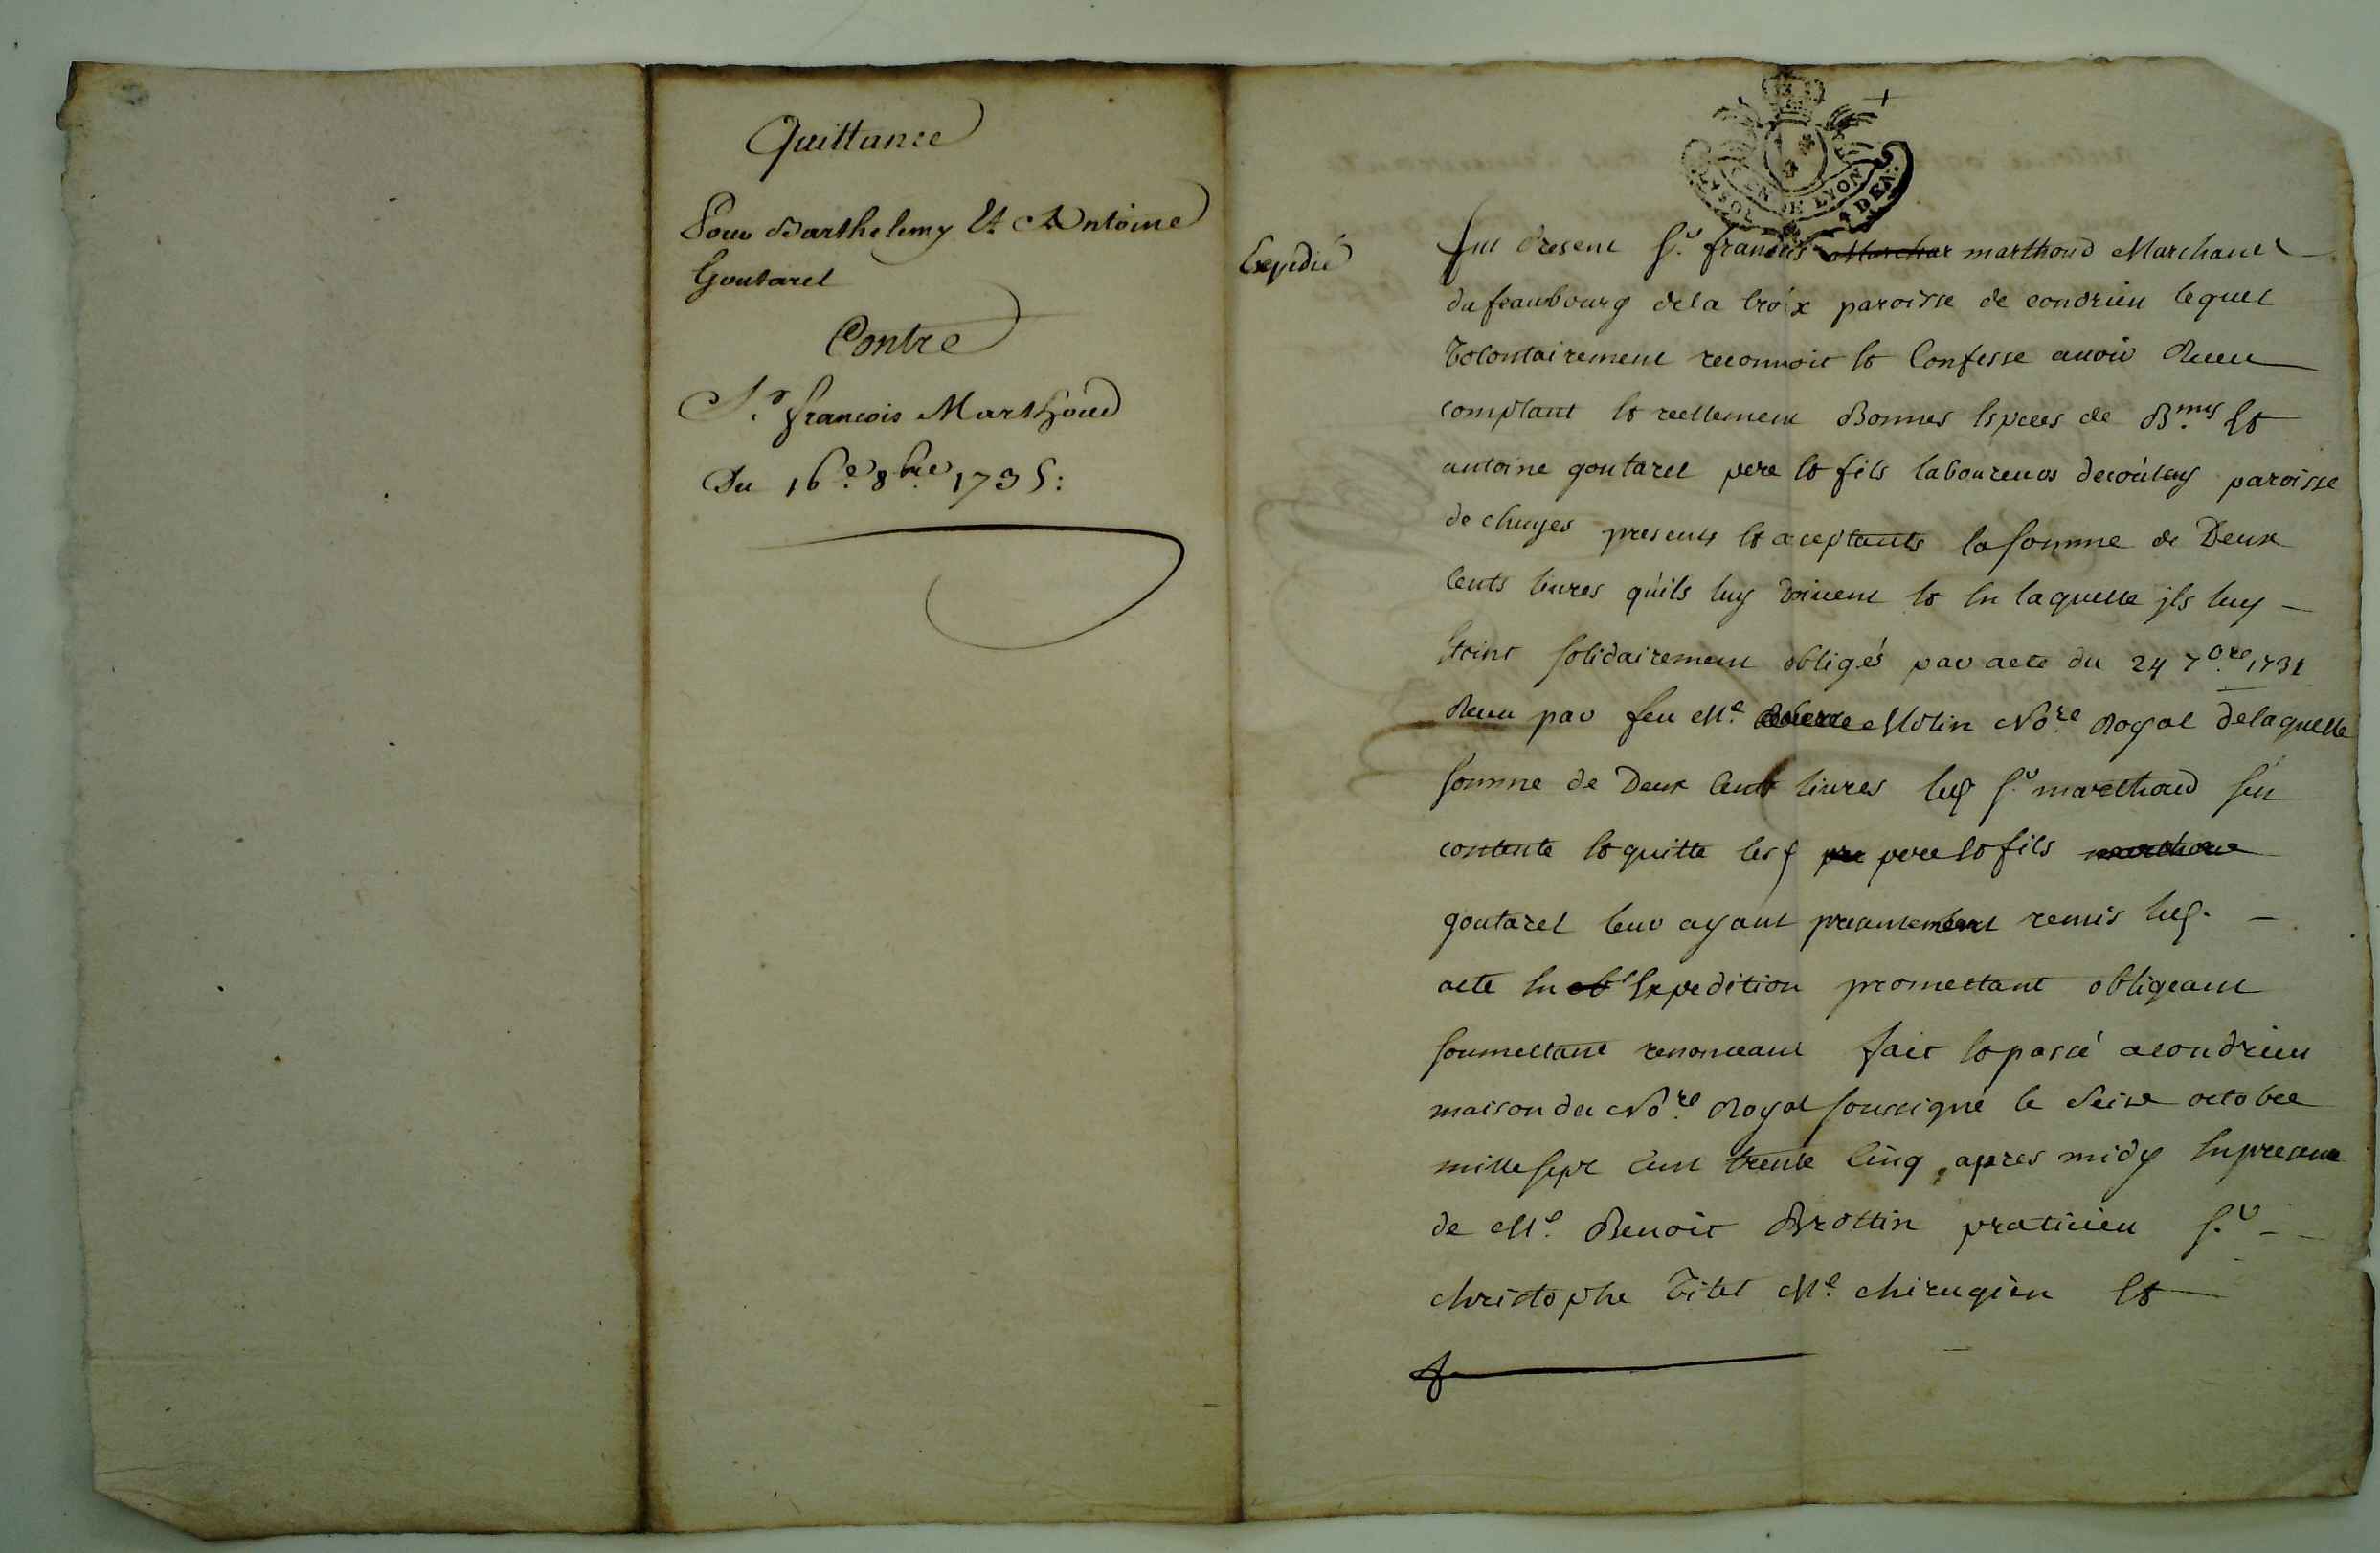 Quittance
Pour Barthelemy Et Antoine
Goutarel
Contre
Sr. francois Marthoud
Du 16e. 8bre 1735:
GEN DE LYON
4 DEN.
Expedié
fut present Sr. francois marthoud Marchand
du feaubourg dela Croix paroisse de condrieu lequel
Volontairement reconnoit Et Confesse auoir Receu
comptant Et reellement Bonnes Especes de B.my Et
antoine goutarel pere Et fils laboureurs paroisse
de chuyes presents Et aceptants la somme de Deux
Cents liures quils luy doiuent Et En laquelle jls luy
Etoint solidairement obligés par acte du 24 7bre. 1731
Receu par feu Me. Molin Nore. Royal delaquelle
somme de Deux Cent liures led Sr. marthoud sen
contente Et quitte lesd pere Et fils
goutarel leur ayant presentement remis led.
acte En Expedition promettant obligeant
soumettant renonceant fait Et passé a condrieu
maison du Nore. Royal soussigné le Seise octobre
mille sept Cent trente Cinq apres midy En presence
de Me. Benoit Brottin praticien Sr.
christophe Titet Me. chirugien Et